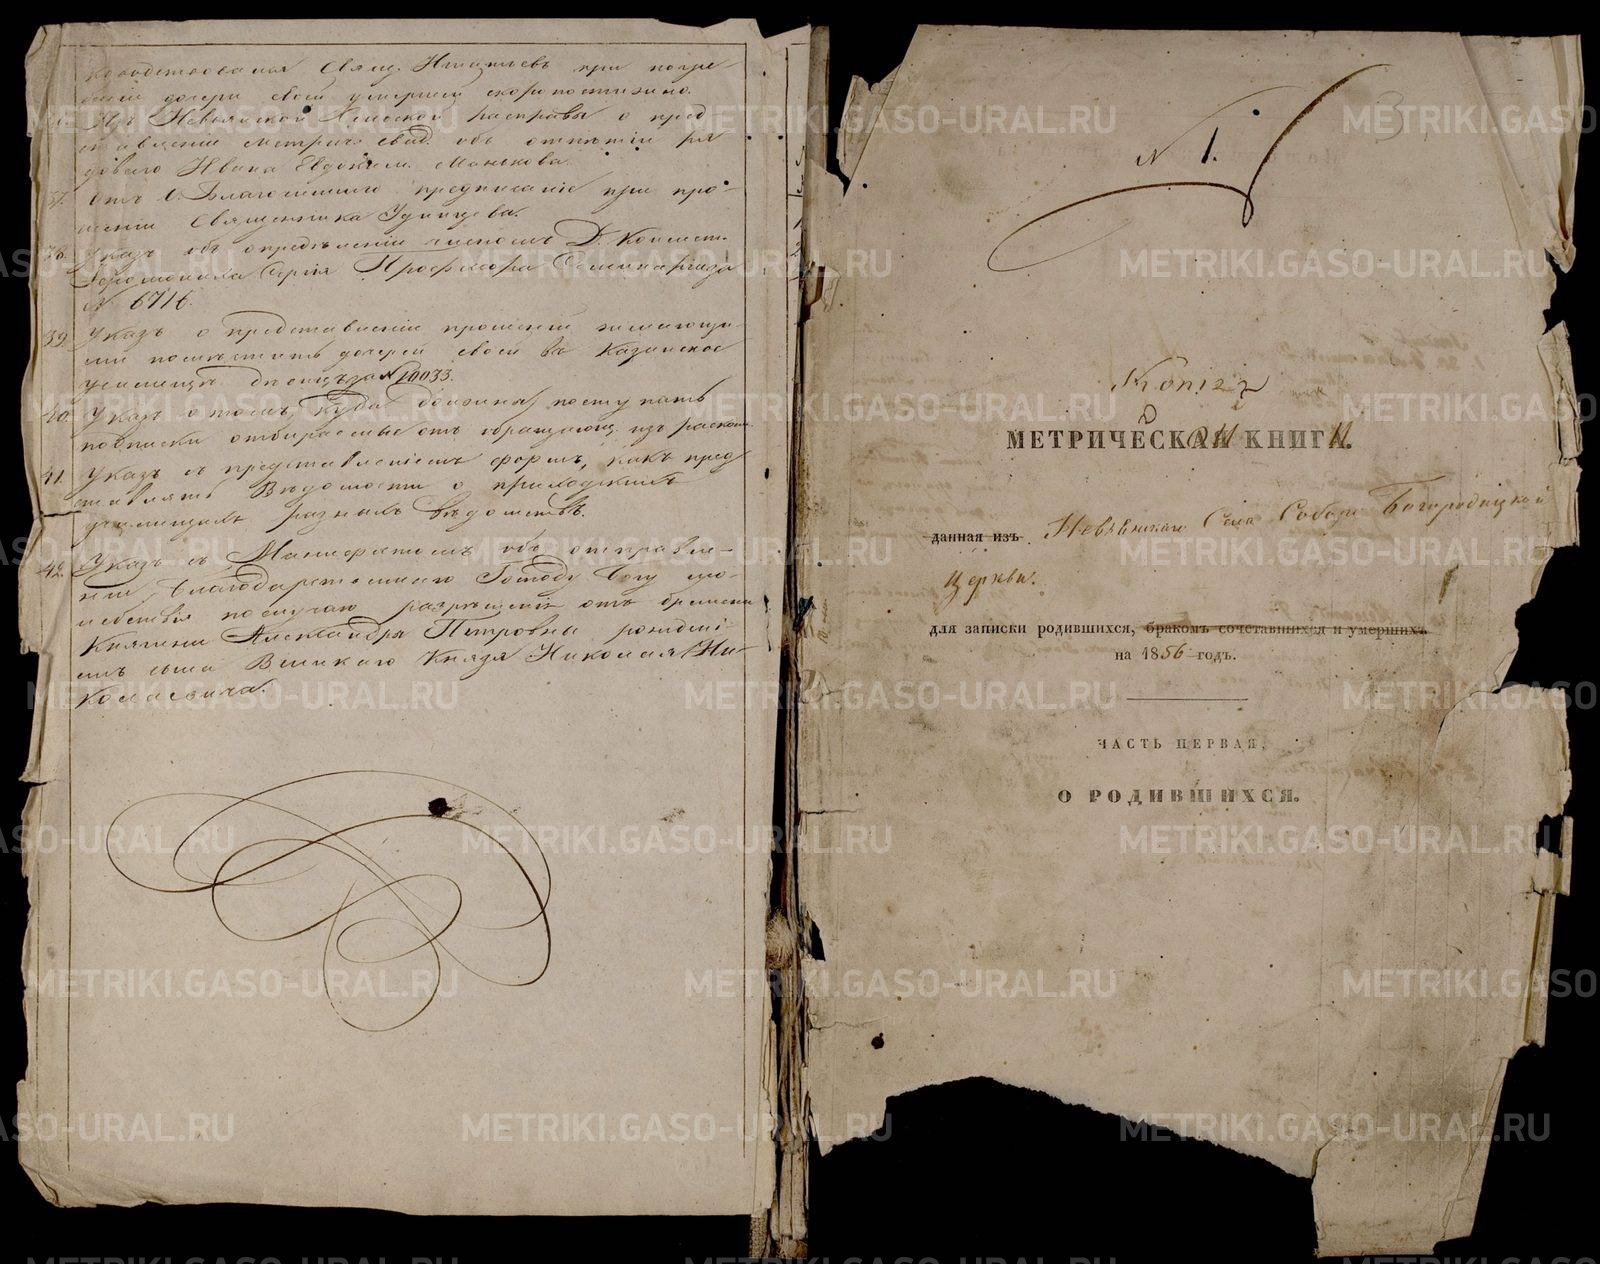 Свящ. Игнатьевъ при погре-
беніи дочери своей умершей скоропостижно.
Изъ Невьянской расправы о пред
ставленіи метрич. свид. объ отпѣтіи ря
доваго Ивана Евдоким. Манькова.
37. Отъ О. Благочиннаго предписаніе при про-
шеніи Священника Удинцева.
38. Указъ объ опредѣленіи членомъ Д. Консист.
Іеромонаха Сергія Профессора Семинаріи за
№ 6716.
39. Указъ о представленіи прошеній желающи-
ми помѣстить дочерей своей въ Казанское
училище дѣвицъ за № 10033.
40. Указъ о томъ, куда должны поступать
подписки отбираемые отъ обращающ. изъ раскол.
41. Указъ съ представленіемъ формъ, какъ пред
ставлять Вѣдомости о приходскихъ
училищахъ разныхъ вѣдомствъ.
42. Указъ съ Манифестомъ объ отправле-
ніи Благодарственнаго Господу Богу мо-
лебствія по случаю разрѣшенія отъ бремени
Княгини Александры Петровны рожденіе-
мъ сына Великаго Князя Николая Ни-
колаевича.
№ 1.
Копія съ
МЕТРИЧЕСКОЙ КНИГИ.
данная изъ Невьянскаго Села Собора Богородицкой
Церкви.
для записки родившихся, бракомъ сочетавшихся и умершихъ
на 1856 годъ.
ЧАСТЬ ПЕРВАЯ,
О РОДИВШИХСЯ.
METRIKI.GASO-URAL.RU